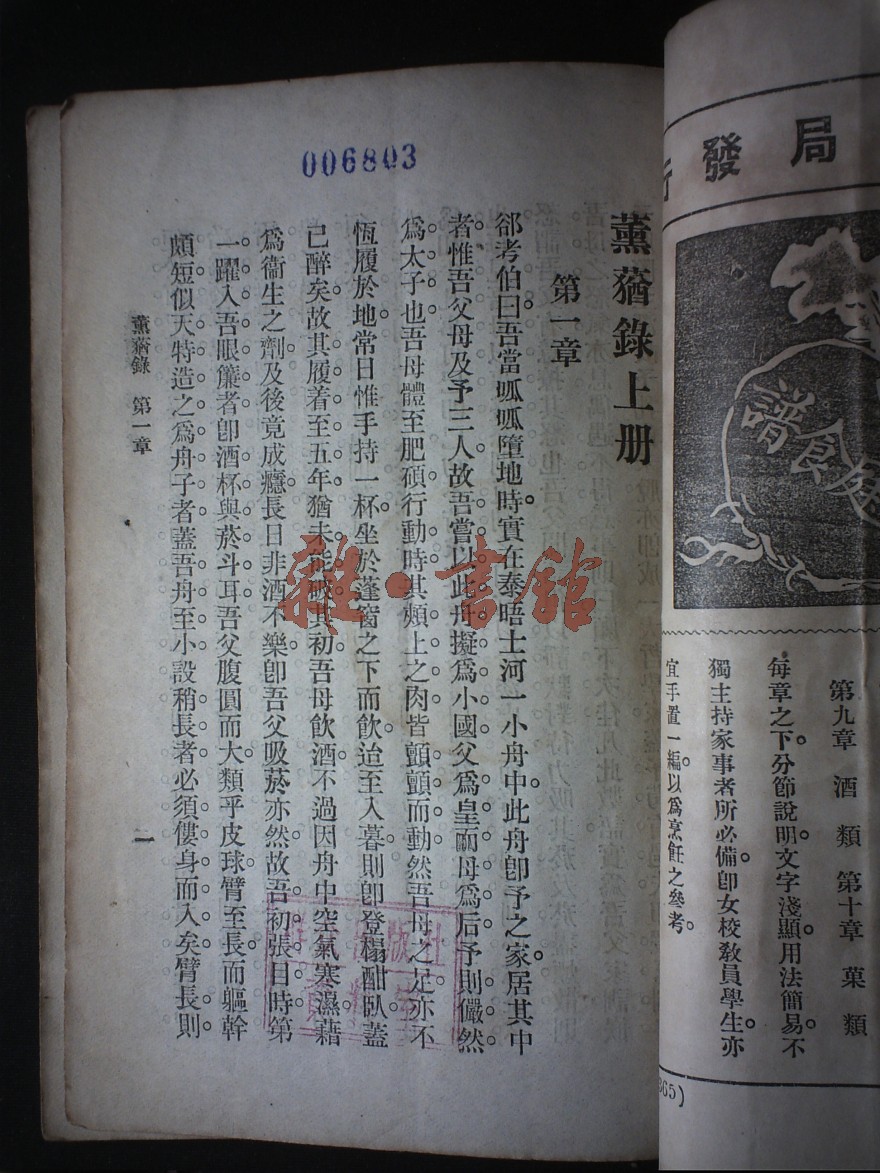 局發行
食譜
第九章 酒類 第十章 菓類
每章之下。分節說明。文字淺顯。用法簡易。不
獨主持家事者所必備。卽女校敎員學生。亦
宜手置一編。以爲烹飪之參考。
365)
006803
薰蕕錄上册
第一章
郤考伯曰吾當呱呱墮地時實在泰晤士河一小舟中此舟卽予之家居其中
者惟吾父母及予三人故吾嘗以此舟擬爲小國父爲皇而母爲后予則儼然
爲太子也吾母體至肥碩行動時其頰上之肉皆顫顫而動然吾母之足亦不
恆履於地常日惟手持一杯坐於蓬窗之下而飲迨至入暮則卽登榻酣臥蓋
已醉矣故其履着至五年猶未能破其初吾母飲酒不過因舟中空氣寒濕藉
爲衞生之劑及後竟成癮長日非酒不樂卽吾父吸菸亦然故吾初張目時第
一躍入吾眼簾者卽酒杯與菸斗耳吾父腹圓而大類乎皮球臂至長而軀幹
頗短似天特造之爲舟子者蓋吾舟至小設稍長者必須僂身而入矣臂長則
薰蕕錄 第一章
一
雜·書館
出版社